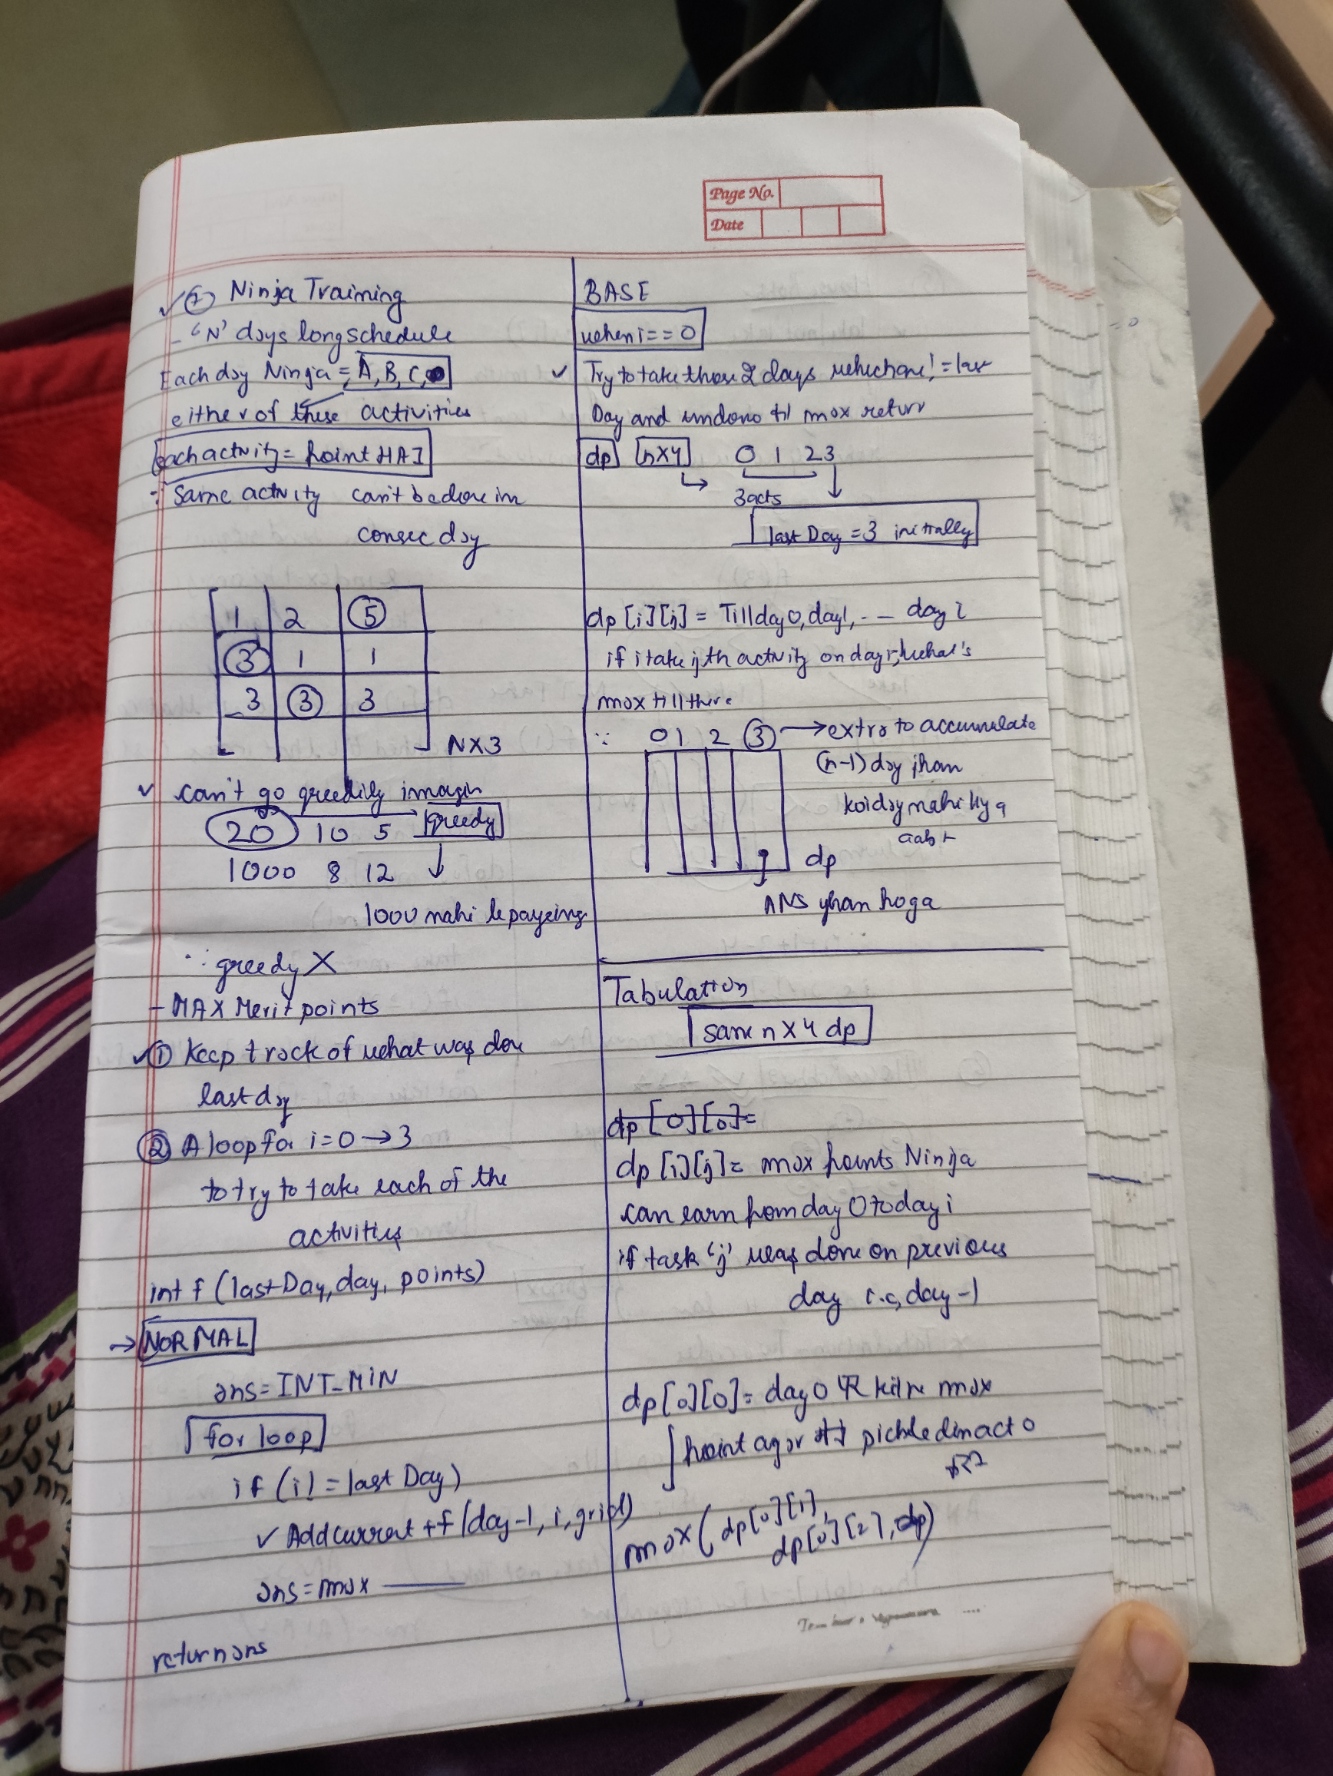 Page No.
Date
✓ 7 Ninja Training
- 'N' days long schedule
Each day Ninja = A, B, C,
either of these activities
each activity = point HAI
∵ same activity can't be done in
consec day
1 2 5
3 1 1
3 3 3
N X 3
✓ can't go greedily imagin
20 10 5 greedy
1000 8 12 ↓
1000 nahi le payeing
∴ greedy X
- MAX Merit points
✓ ① Keep track of what was done
last day
② A loop for i = 0 → 3
to try to take each of the
activities
int f (last Day, day, points)
→ NORMAL
ans = INT_MIN
for loop
if (i != last Day)
✓ Add current + f (day-1, i, grid)
ans = max ———
return ans
BASE
when i == 0
✓ Try to take those 2 days which one != last
Day and max return
dp n X 4 0 1 2 3
→ 3 acts ↓
last Day = 3 initially
dp [i][j] = Till day 0, day 1, -- day i
if i take jth activity on day i, what's
max till there
∵ 0 1 2 ③ → extra to accumulate
(n-1) day jhan
koi day nahi liya
dp
ANS yhan hoga
Tabulation
same n X 4 dp
dp [0][0] =
dp [i][j] = max points Ninja
can earn from day 0 to day i
if task 'j' was done on previous
day i.e, day-1
dp[0][0] = day 0 kitne max
point agar pichle din act 0
max( dp[0][1],
dp[0][2], dp)